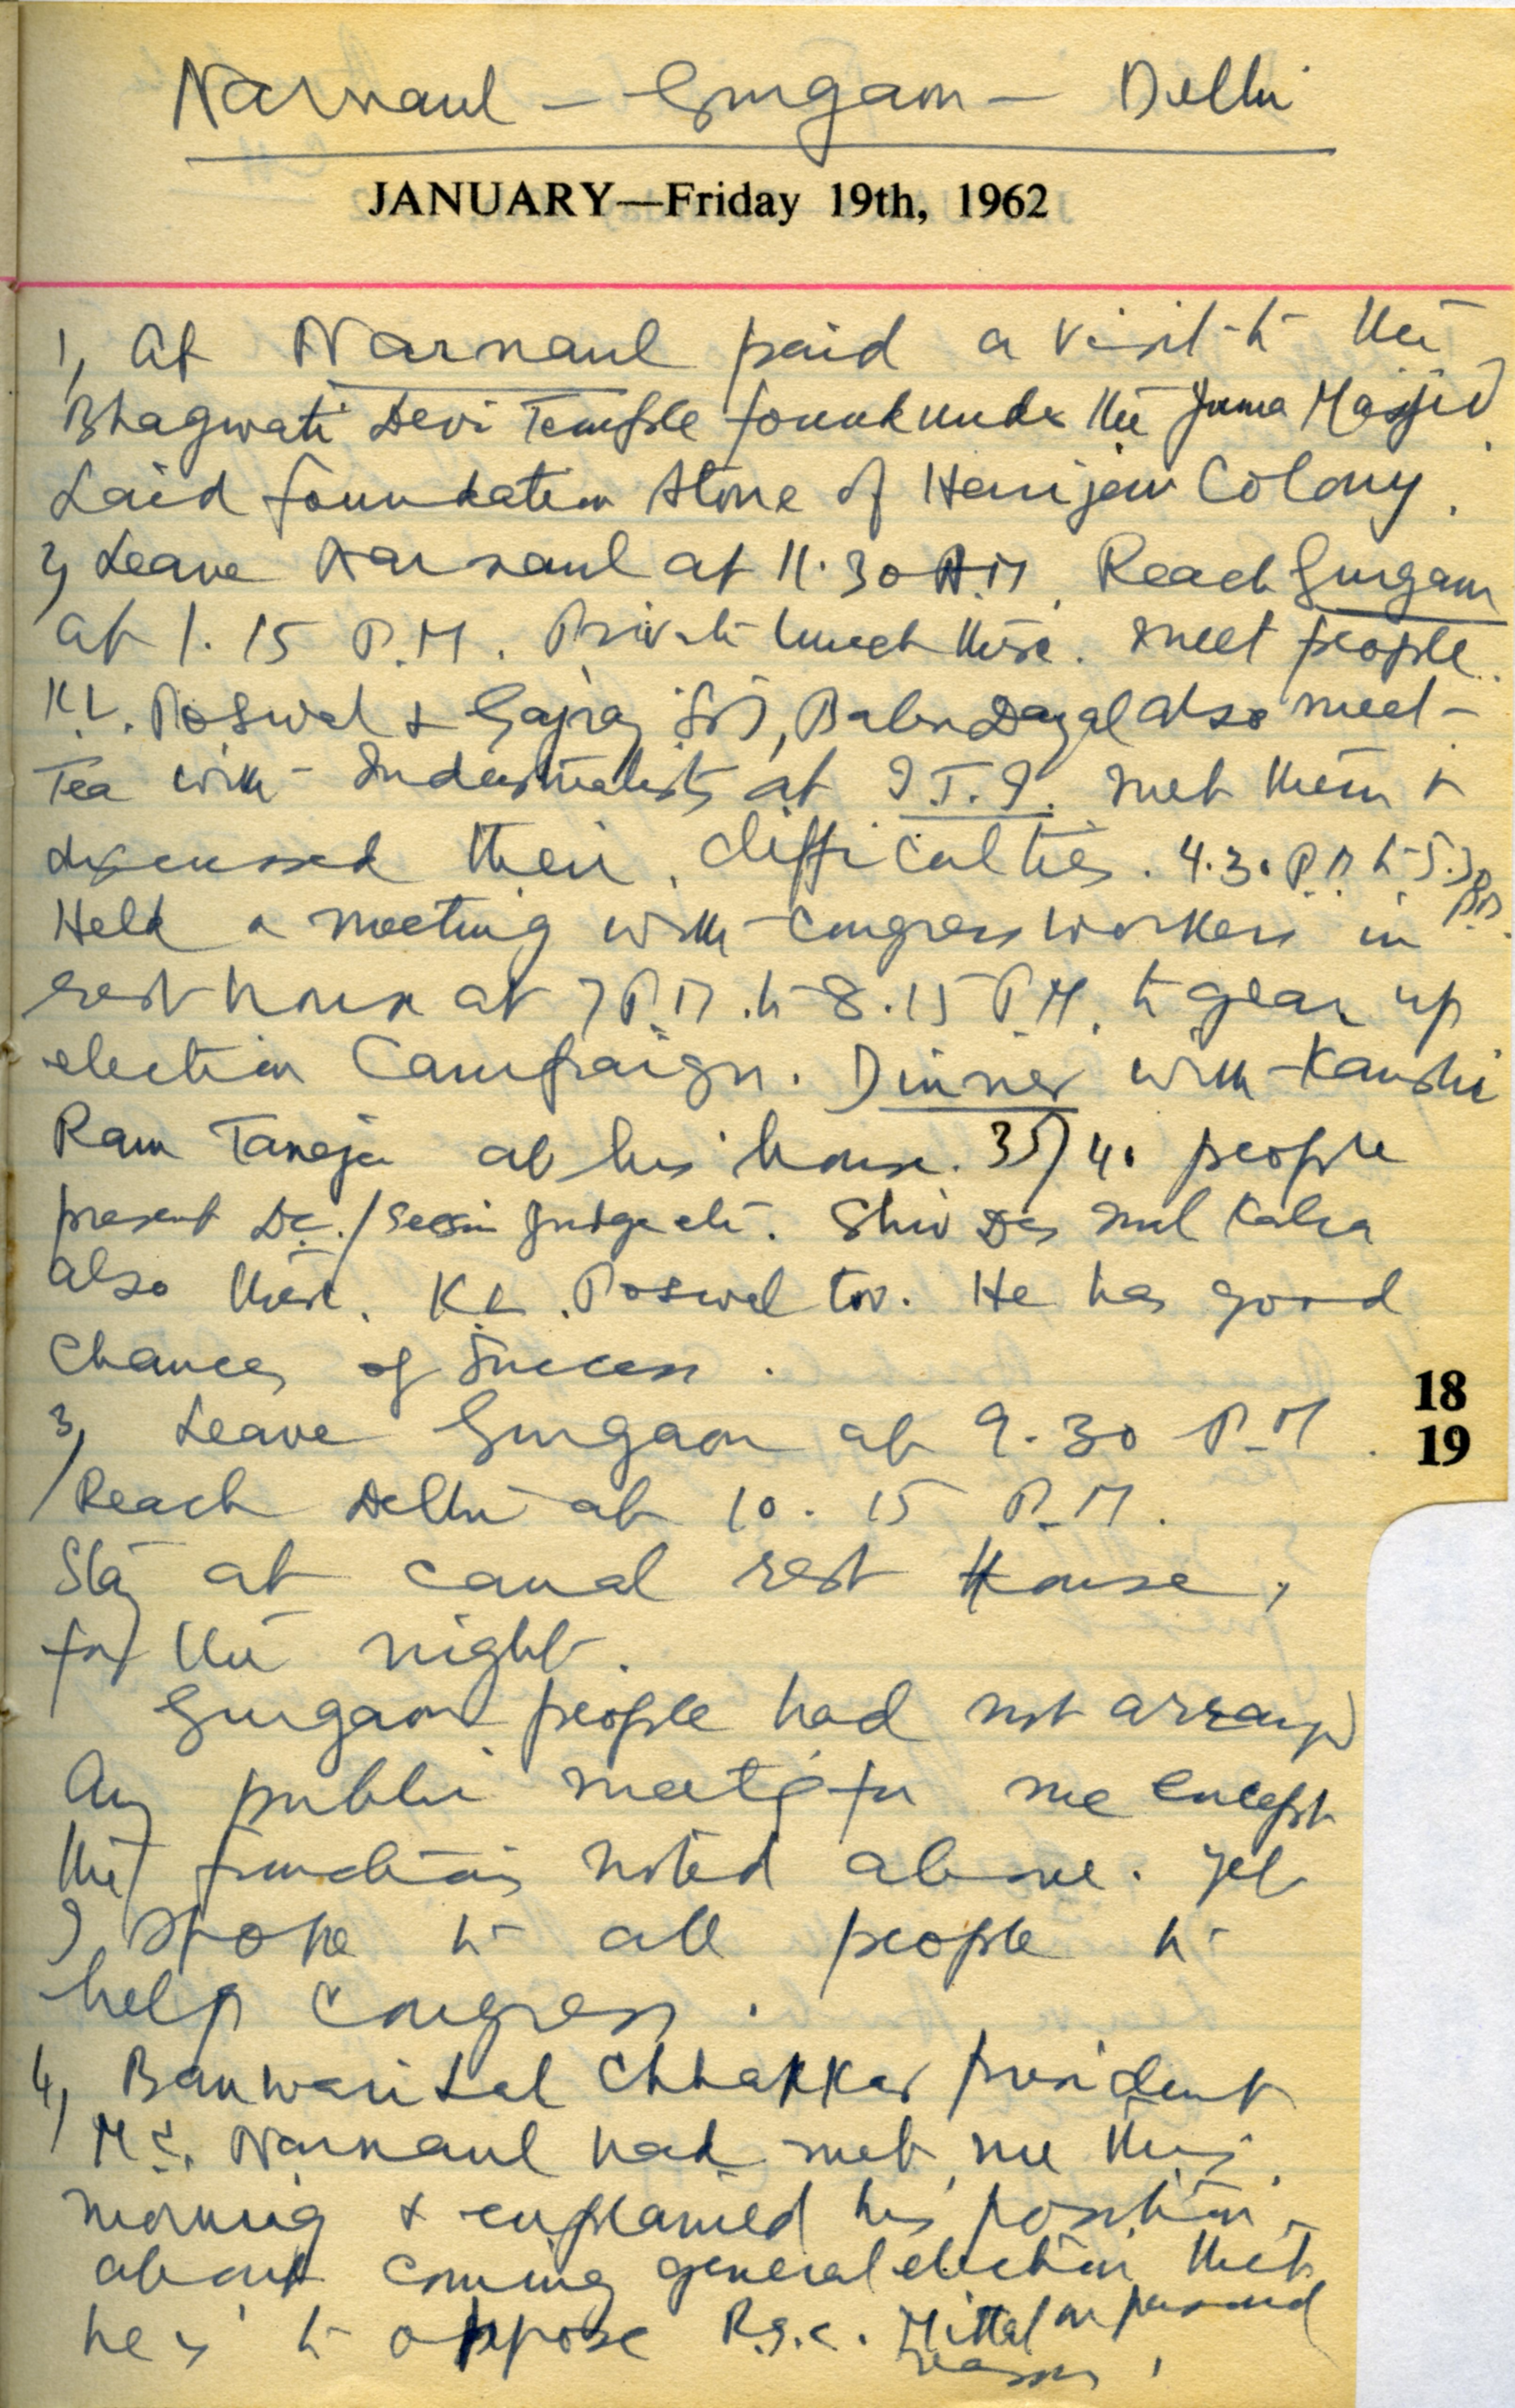 Narnaul – Gurgaon – Delhi
JANUARY—Friday 19th, 1962
1, At Narnaul paid a visit to the
Bhagwati Devi Temple found under the Juma Masjid.
Laid foundation stone of Harijan Colony.
2, Leave Narnaul at 11.30 A.M. Reach Gurgaon
at 1.15 P.M. Private lunch there. meet people.
K.L. Poswal & Gajraj Babu Dayal also meet –
Tea with Industrialists at I.T.I. met them &
discussed their difficulties. 4.30 P.M to 5.30
P.M.
Held a meeting with Congress workers in
rest house at 7 P.M. to 8.15 P.M. to gear up
election Campaign. Dinner with Kanshi
Ram Taneja at his house. 35/40 people
present D.C./Session Judge etc. Shiv Das Kalra
also there. K.L. Poswal too. He has good
chances of Success.
3, Leave Gurgaon at 9.30 P.M.
18
19
Reach Delhi at 10.15 P.M.
Stay at canal rest House,
for the night.
Gurgaon people had not arranged
any public meetg for me except
the functions noted above. Yet
I spoke to all people to
help Congress.
4, Banwari Lal Chhakkar president
M.C. Narnaul had met me this
morning & explained his position
about coming general election that
he is to oppose R.S.C. Mittal on personal
reasons.